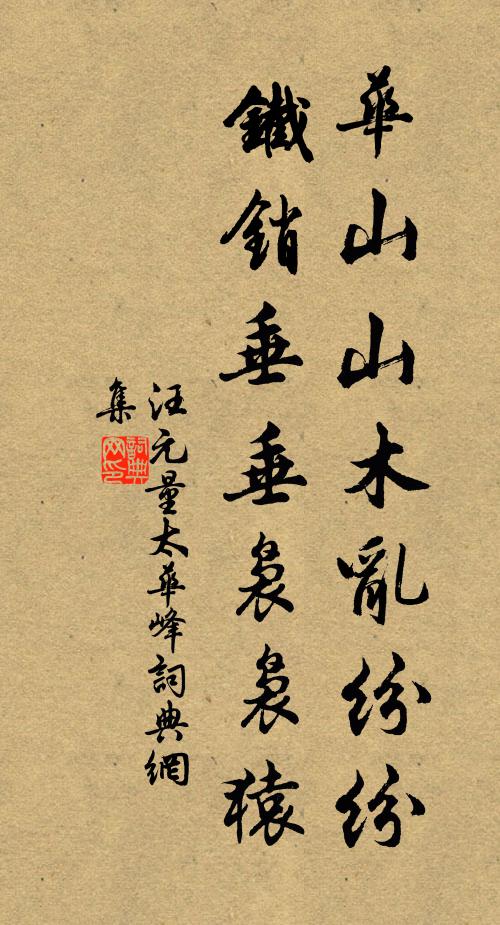 華山山木亂紛紛
鐵銷垂垂裊裊猿
汪元量太華峰詞典網
集
詞典
网印